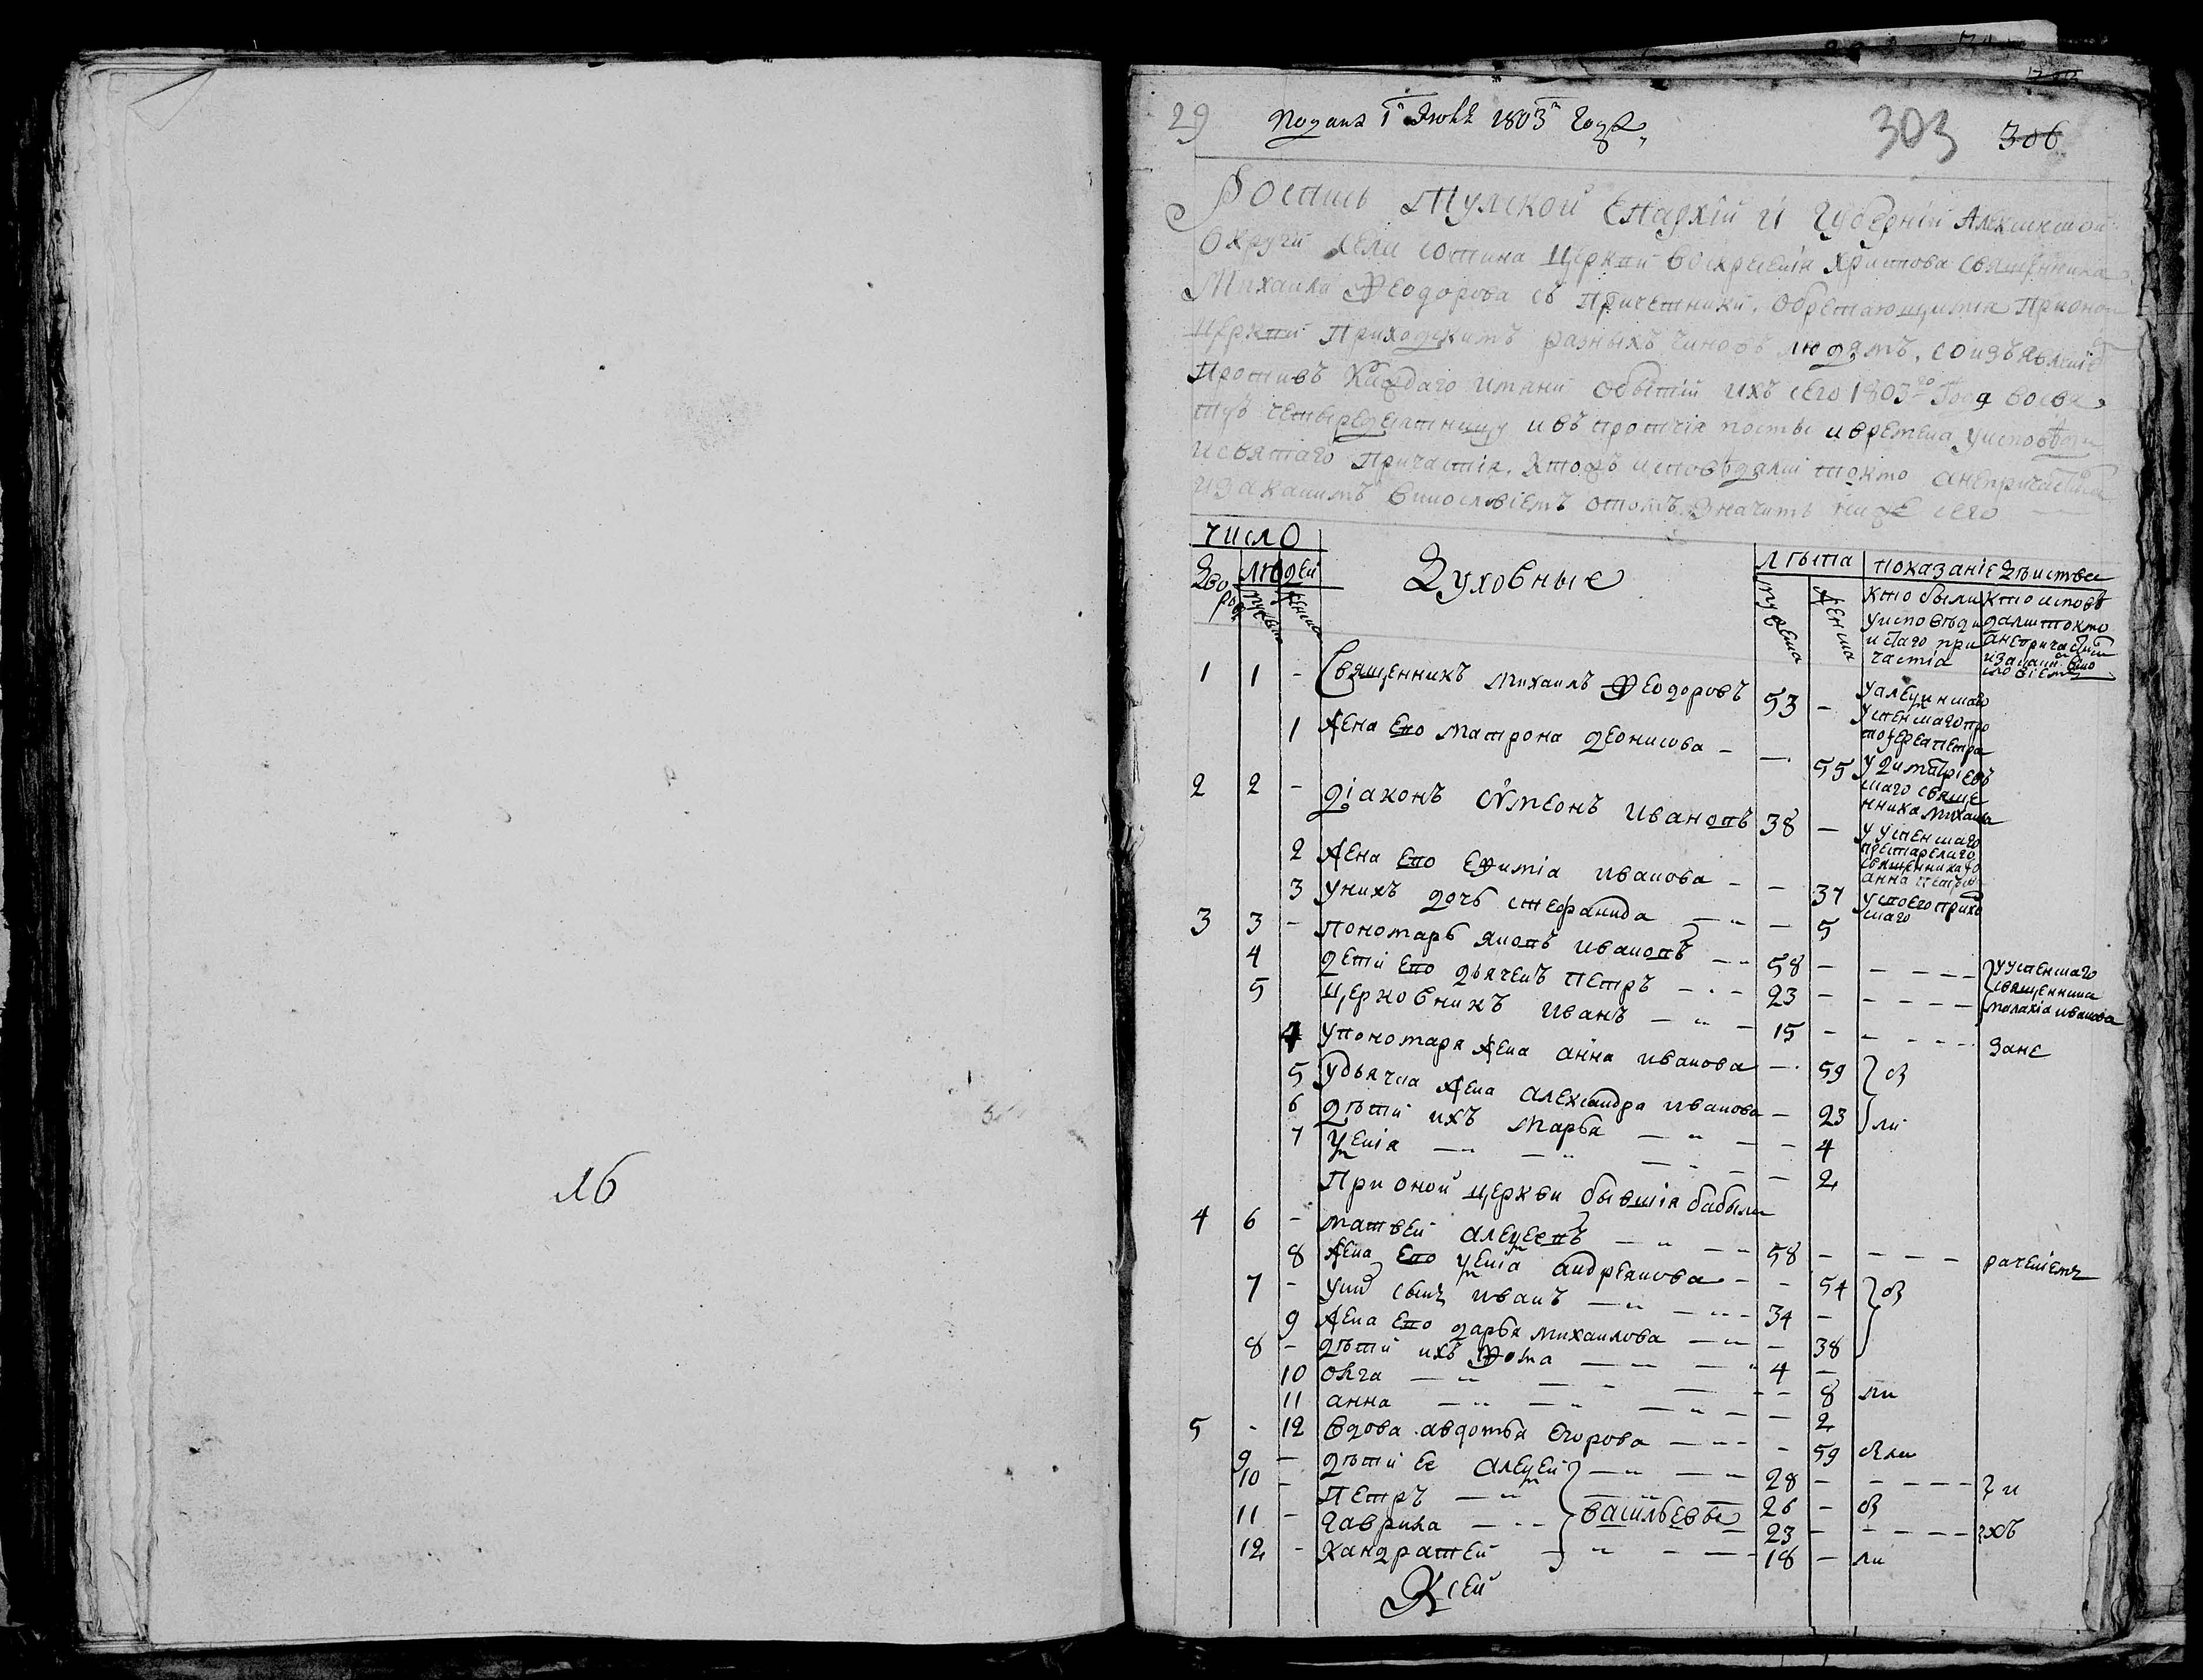 16
29
Подана 1 Июля 1803 года
303 306
Роспись Тулской Епархіи и Губерніи Алексинской
Округи села Сотина Церкви воскресенія Христова священника
Михаила Ѳеодорова съ Причетники. обретающимся При оной
церкви Приходскимъ разныхъ чиновъ людямъ, со изъявленіе
Противъ каждаго имяни о бытіи ихъ сего 1803го Года во свя
тую четыредесятницу и въ протчія посты и времена у исповеди
и святаго причастія. Ктожъ исповедался токмо а не причастился
и за какимъ винословіемъ о томъ значитъ ниже сего
число
Дво ровъ людей Духовные лѣта показаніе дѣиства
мужеска женска мужеска женска
кто были кто исповѣ
у исповѣди дался токмо
и стаго при а не причастил
частія и за каки вино
словіем
1 1 - Священникъ Михаилъ Ѳеодоровъ 53 - у алексинскаго
успенскаго про
тоиерея петра
1 жена ево Матрона деонисова - — 55 у димитріевъ
скаго свяще
нника Михаила
2 2 - діаконъ Сѵмеонъ Ивановъ 38 - у успенскаго
престарелаго
священника Ио
анна
2 жена ево Еѳимія Иванова - - 37 у своего прихо
скаго
3 у нихъ дочь стефанида - - 5
3 3 - пономарь яковъ Ивановъ - - 58 - - - - - у успенскаго
4 дети ево дьячекъ Петръ - - 23 - - - - - священника
малахіа иванова
5 церковникъ Иванъ - - 15 - - - - - зане
4 у пономаря жена анна иванова - 59 } б
5 у дьячка жена александра иванова - 23 } ли
6 дѣти ихъ Марѳа - - - - 4
7 Ксенія - - - - 2
При оной церкви бывшія бабыли
4 6 - матвей алексеевъ - - 58 - - - - раченіемъ
8 жена ево ксенія андреянова - - 54 } б
7 - у них сынъ иванъ - - - 34 -
9 жена ево дарья михаилова - - 38
8 - дѣти ихъ Ѳома - - - 4 -
10 олга - - - - - 8 ли
11 анна - - - - - 2
5 - 12 вдова авдотья егорова - - - 59 были
9 - дѣти ее алексей } - - 28 - - - - } и
10 - Петръ - - 26 - б
11 - гаврила - - } васильевы 23 - - - - } хъ
12 - кандратей - - - 18 - ли
Ксей